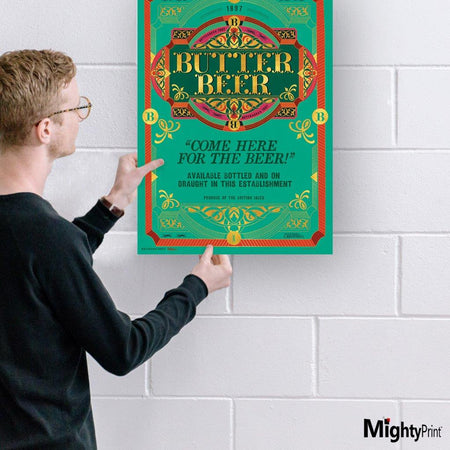 1897
B
BUTTER
BEER
B
B
B
"COME HERE
FOR THE BEER!"
AVAILABLE BOTTLED AND ON
DRAUGHT IN THIS ESTABLISHMENT
PRODUCE OF THE BRITISH ISLES
MightyPrint